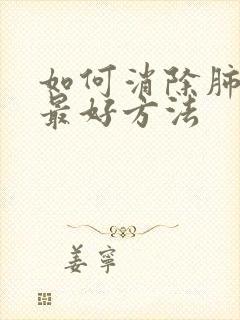 如何消除肺
最好方法
姜寧